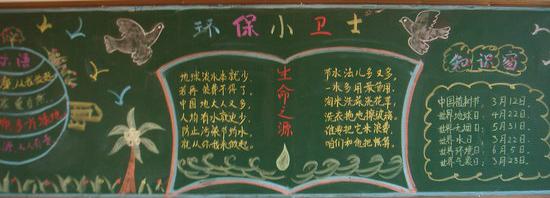 环保小卫士
地球淡水本就少,
若再浪费不得了。
中国地大人又多,
人均有水就更少,
防止污染节约水,
就从你我水做起。
生命之源
节水法儿多又多,
一水多用最管用。
淘水洗菜洗花草,
洗衣拖地擦玻璃。
谁要把它来浪费,
咱们和他把账算。
知识窗
中国植树节:3月12日。
世界地球日:4月22日。
世界无烟日:5月31日。
世界水日:3月22日。
世界环境日:6月5日。
世界气象日:3月23日。